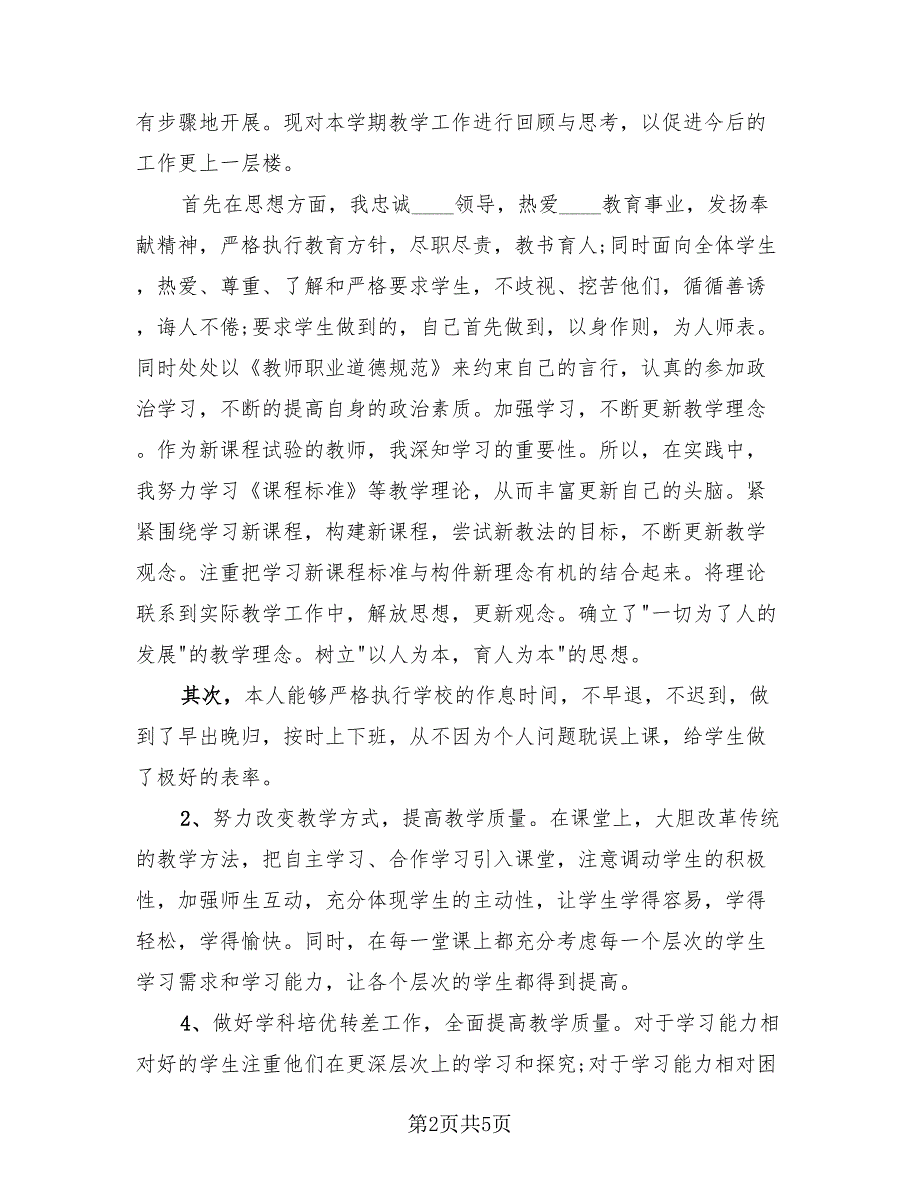 有步骤地开展。现对本学期教学工作进行回顾与思考，以促进今后的
工作更上一层楼。
首先在思想方面，我忠诚____领导，热爱____教育事业，发扬奉
献精神，严格执行教育方针，尽职尽责，教书育人;同时面向全体学生
，热爱、尊重、了解和严格要求学生，不歧视、挖苦他们，循循善诱
，诲人不倦;要求学生做到的，自己首先做到，以身作则，为人师表。
同时处处以《教师职业道德规范》来约束自己的言行，认真的参加政
治学习，不断的提高自身的政治素质。加强学习，不断更新教学理念
。作为新课程试验的教师，我深知学习的重要性。所以，在实践中，
我努力学习《课程标准》等教学理论，从而丰富更新自己的头脑。紧
紧围绕学习新课程，构建新课程，尝试新教法的目标，不断更新教学
观念。注重把学习新课程标准与构件新理念有机的结合起来。将理论
联系到实际教学工作中，解放思想，更新观念。确立了"一切为了人的
发展"的教学理念。树立"以人为本，育人为本"的思想。
其次，本人能够严格执行学校的作息时间，不早退，不迟到，做
到了早出晚归，按时上下班，从不因为个人问题耽误上课，给学生做
了极好的表率。
2、努力改变教学方式，提高教学质量。在课堂上，大胆改革传统
的教学方法，把自主学习、合作学习引入课堂，注意调动学生的积极
性，加强师生互动，充分体现学生的主动性，让学生学得容易，学得
轻松，学得愉快。同时，在每一堂课上都充分考虑每一个层次的学生
学习需求和学习能力，让各个层次的学生都得到提高。
4、做好学科培优转差工作，全面提高教学质量。对于学习能力相
对好的学生注重他们在更深层次上的学习和探究;对于学习能力相对困
第2页共5页